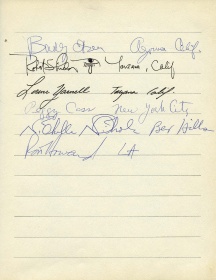 Buddy Ebsen Agoura Calif.
Tarzana, Calif
Lorene Yarnell Tarzana Calif.
Peggy Cass New York City
Nichols Bev Hills
Ron Howard LA